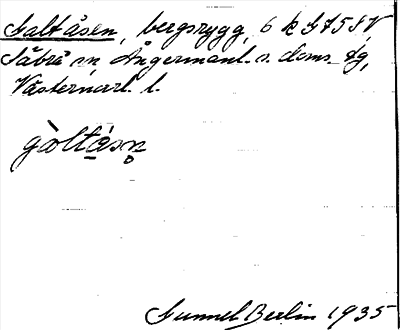 Galtåsen, bergsrygg, 6 k
Säbrå sn Ångermanl. s. doms. tg,
Västernorl. l.
gàltásn̥
Gunnel Berlin 1935